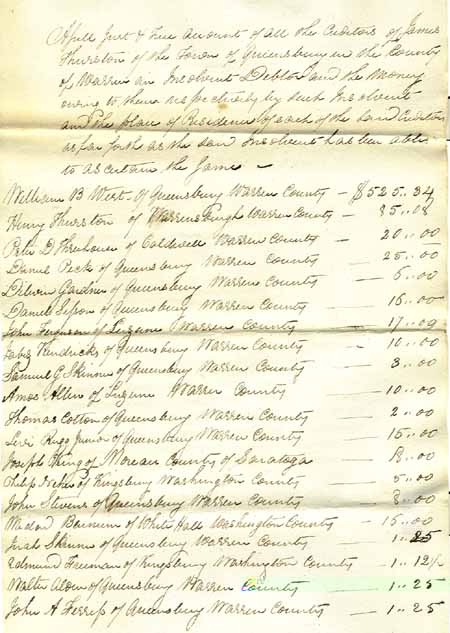 A full just & true amount of all the Creditors of James
Thurston of the Town of Queensbury in the County
of Warren an Insolvent Debtor and the money
owing to them respectively by such Insolvent
and the place of Residence of each of the said Creditors
as far forth as the said Insolvent has been able
to ascertain the same –
William B West of Queensbury Warren County – $525..34
Henry Thurston of Warrensburgh Warren County – 85..08
Peter D of Caldwell Warren County – 20..00
Daniel Peck of Queensbury Warren County – 25..00
Gardner of Queensbury Warren County – 5..00
Daniel of Queensbury Warren County – 16..00
John Ferguson of Luzerne Warren County – 17..09
Kendricks of Queensbury Warren County – 10..00
Samuel G Skinner of Queensbury Warren County – 3..00
Amos Allen of Luzerne Warren County – 10..00
Thomas Cotton of Queensbury Warren County – 2..00
Levi Rugg Junior of Queensbury Warren County – 15..00
Joseph King of Moreau County of Saratoga – ..00
Philip of Kingsbury Washington County – 5..00
John Stevens of Queensbury Warren County – 8..00
of White Hall Washington County – 15..00
Skinner of Queensbury Warren County – 1..25
Edmund Freeman of Kingsbury Washington County – 1..12½
Walter of Queensbury Warren County – 1..25
John A Ferriss of Queensbury Warren County – 1..25